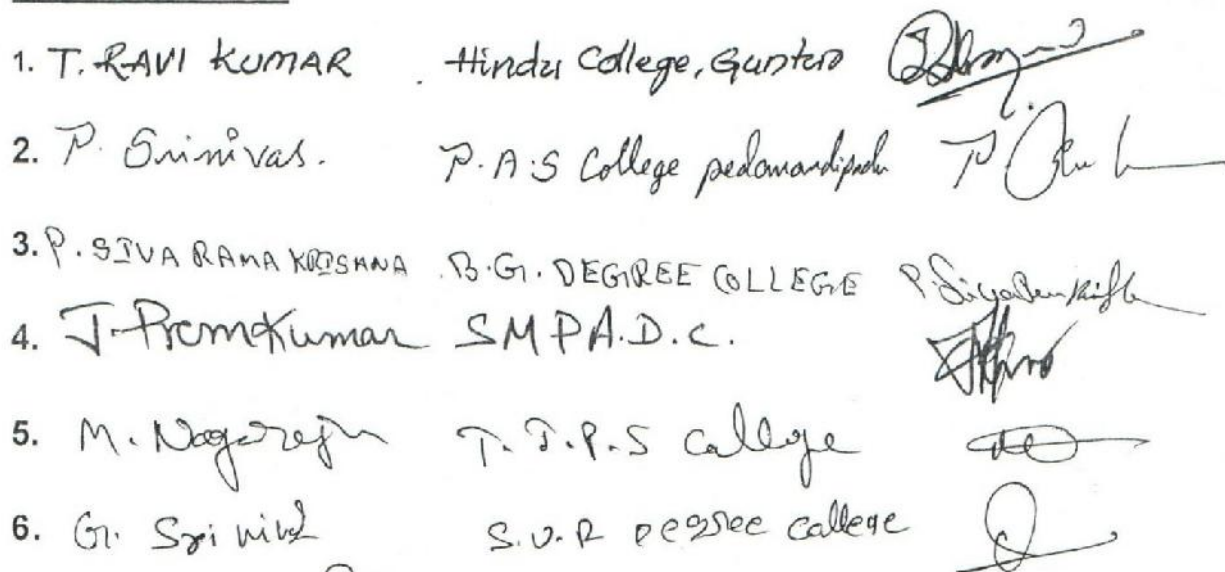 1. T. RAVI KUMAR . Hindu College, Guntur
2. P. Srinivas. P.A.S College pedanandipadu
3. P. SIVA RAMA KRISHNA B.G. DEGREE COLLEGE
4. J. PremKumar SMPA.D.C.
5. M. Nagaraju T.J.P.S College
6. G. Srinivas S.V.R Degree College